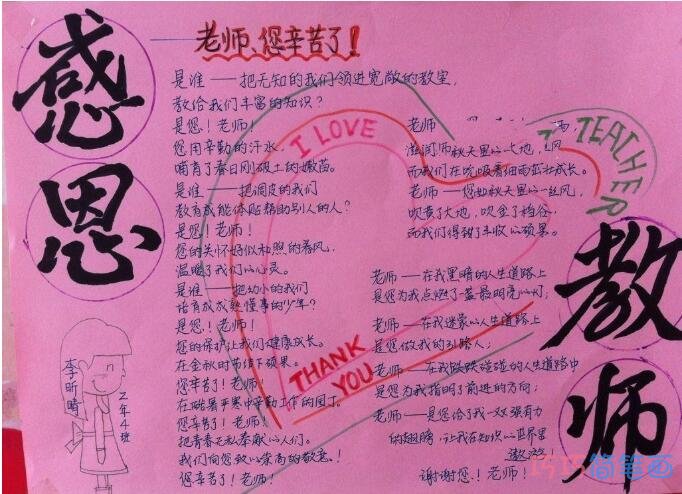 感恩
老师、您辛苦了!
是谁——把无知的我们领进宽敞的教室,
教给我们丰富的知识?
是您!老师!
您用辛勤的汗水,
哺育了春日刚破土的嫩苗。
是谁——把调皮的我们
教育成能体贴帮助别人的人?
是您!老师!
您的关怀好似和煦的春风,
温暖了我们的心灵。
是谁——把幼小的我们
培育成成熟懂事的少年?
是您!老师!
您的保护让我们健康成长。
在金秋时节结下硕果。
您辛苦了!老师!
在酷暑严寒中辛勤工作的园丁。
您辛苦了!老师!
把青春无私奉献的人们。
我们向您致以崇高的敬意。!
您辛苦了!老师!
I LOVE
TEACHER
THANK
YOU
老师
而我们在吮吸着细雨茁壮成长。
老师——您如秋天里的一丝风
吹黄了大地,吹金了稻谷
而我们得到了丰收的硕果。
老师——在我黑暗的人生道路上
是您为我点燃了一盏最明亮的灯;
老师——在我迷蒙的人生道路上
是您做我的引路人;
老师——在我跌跌碰碰的人生道路中
是您为我指明了前进的方向;
老师——是您给了我一双强有力
的翅膀,让我在知识的世界里
遨游
谢谢您.!老师!
教师
李昕晴
2年4班
巧巧简笔画